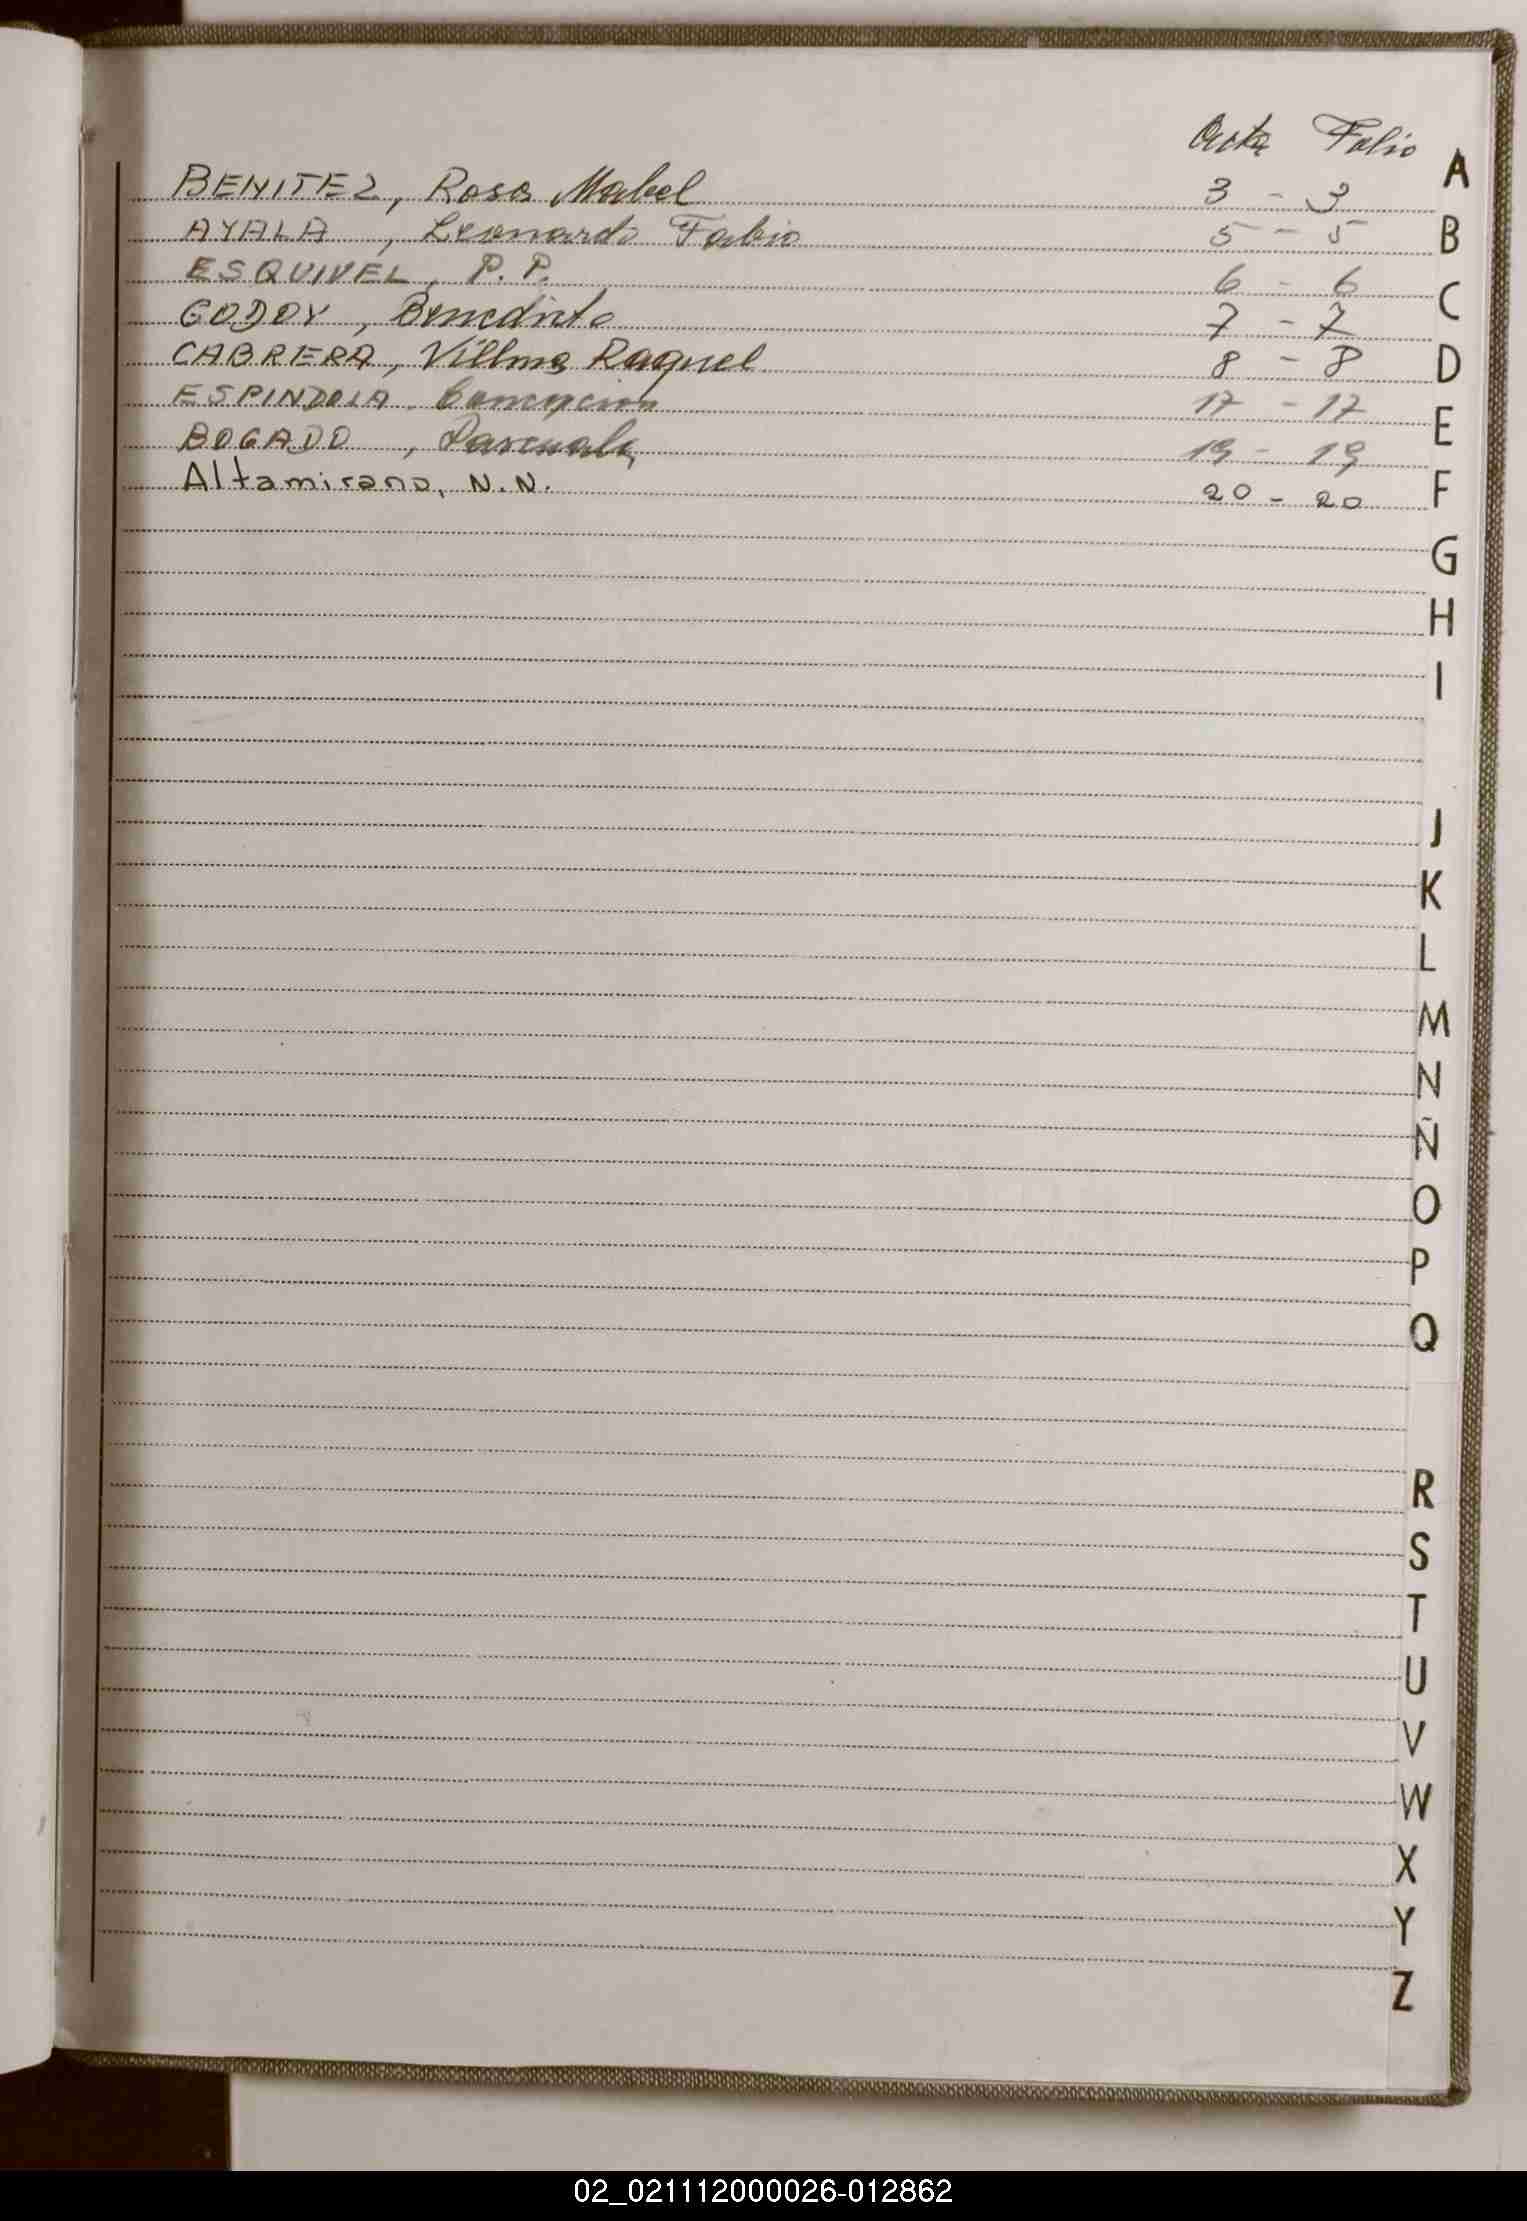 Acta Folio
BENITEZ, Rosa Mabel 3 - 3
AYALA, Leonardo Fabio 5 - 5
ESQUIVEL, P. P. 6 - 6
GODOY, Benedicto 7 - 7
CABRERA, Villma Raquel 8 - 8
ESPINDOLA, Concepcion 17 - 17
BOGADO, Pascuala 19 - 19
Altamirano, N.N. 20 - 20
A
B
C
D
E
F
G
H
I
J
K
L
M
N
Ñ
O
P
Q
R
S
T
U
V
W
X
Y
Z
02_021112000026-012862